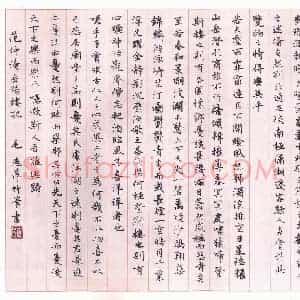 之述備矣然則北通巫峽南極瀟湘遷客騷人多會於此
覽物之情得無異乎
若夫霪雨霏霏連月不開陰風怒號濁浪排空日星隱耀
山岳潛形商旅不行檣傾楫摧薄暮冥冥虎嘯猿啼登
斯樓也則有去國懷鄉憂讒畏譏滿目蕭然感極而悲者矣
至若春和景明波瀾不驚上下天光一碧萬頃沙鷗翔集
錦鱗游泳岸芷汀蘭郁郁青青而或長煙一空皓月千里
浮光躍金靜影沉璧漁歌互答此樂何極登斯樓也則有
心曠神怡寵辱偕忘把酒臨風其喜洋洋者也
嗟乎予嘗求古仁人之心或異二者之為何哉不以物喜不以
己悲居廟堂之高則憂其民處江湖之遠則憂其君是進
亦憂退亦憂然則何時而樂耶其必曰先天下之憂而憂後
天下之樂而樂歟噫微斯人吾誰與歸
范仲淹岳陽樓記
書
Shufaziliao.com